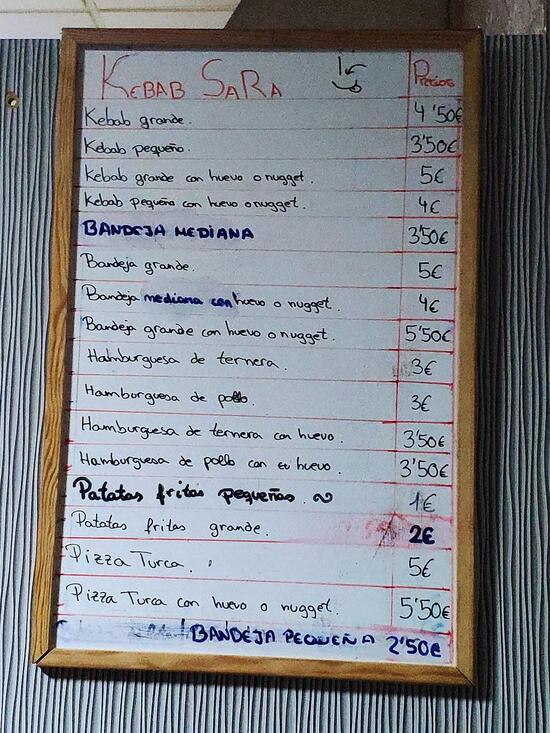 KEBAB SARA Precios
Kebab grande. 4'50€
Kebab pequeño. 3'50€
Kebab grande con huevo o nugget. 5€
Kebab pequeño con huevo o nugget. 4€
BANDEJA MEDIANA 3'50€
Bandeja grande. 5€
Bandeja mediana con huevo o nugget. 4€
Bandeja grande con huevo o nugget. 5'50€
Hamburguesa de ternera. 3€
Hamburguesa de pollo. 3€
Hamburguesa de ternera con huevo. 3'50€
Hamburguesa de pollo con huevo. 3'50€
Patatas fritas pequeñas. 1€
Patatas fritas grande. 2€
Pizza Turca. 5€
Pizza Turca con huevo o nugget. 5'50€
BANDEJA PEQUEÑA 2'50€